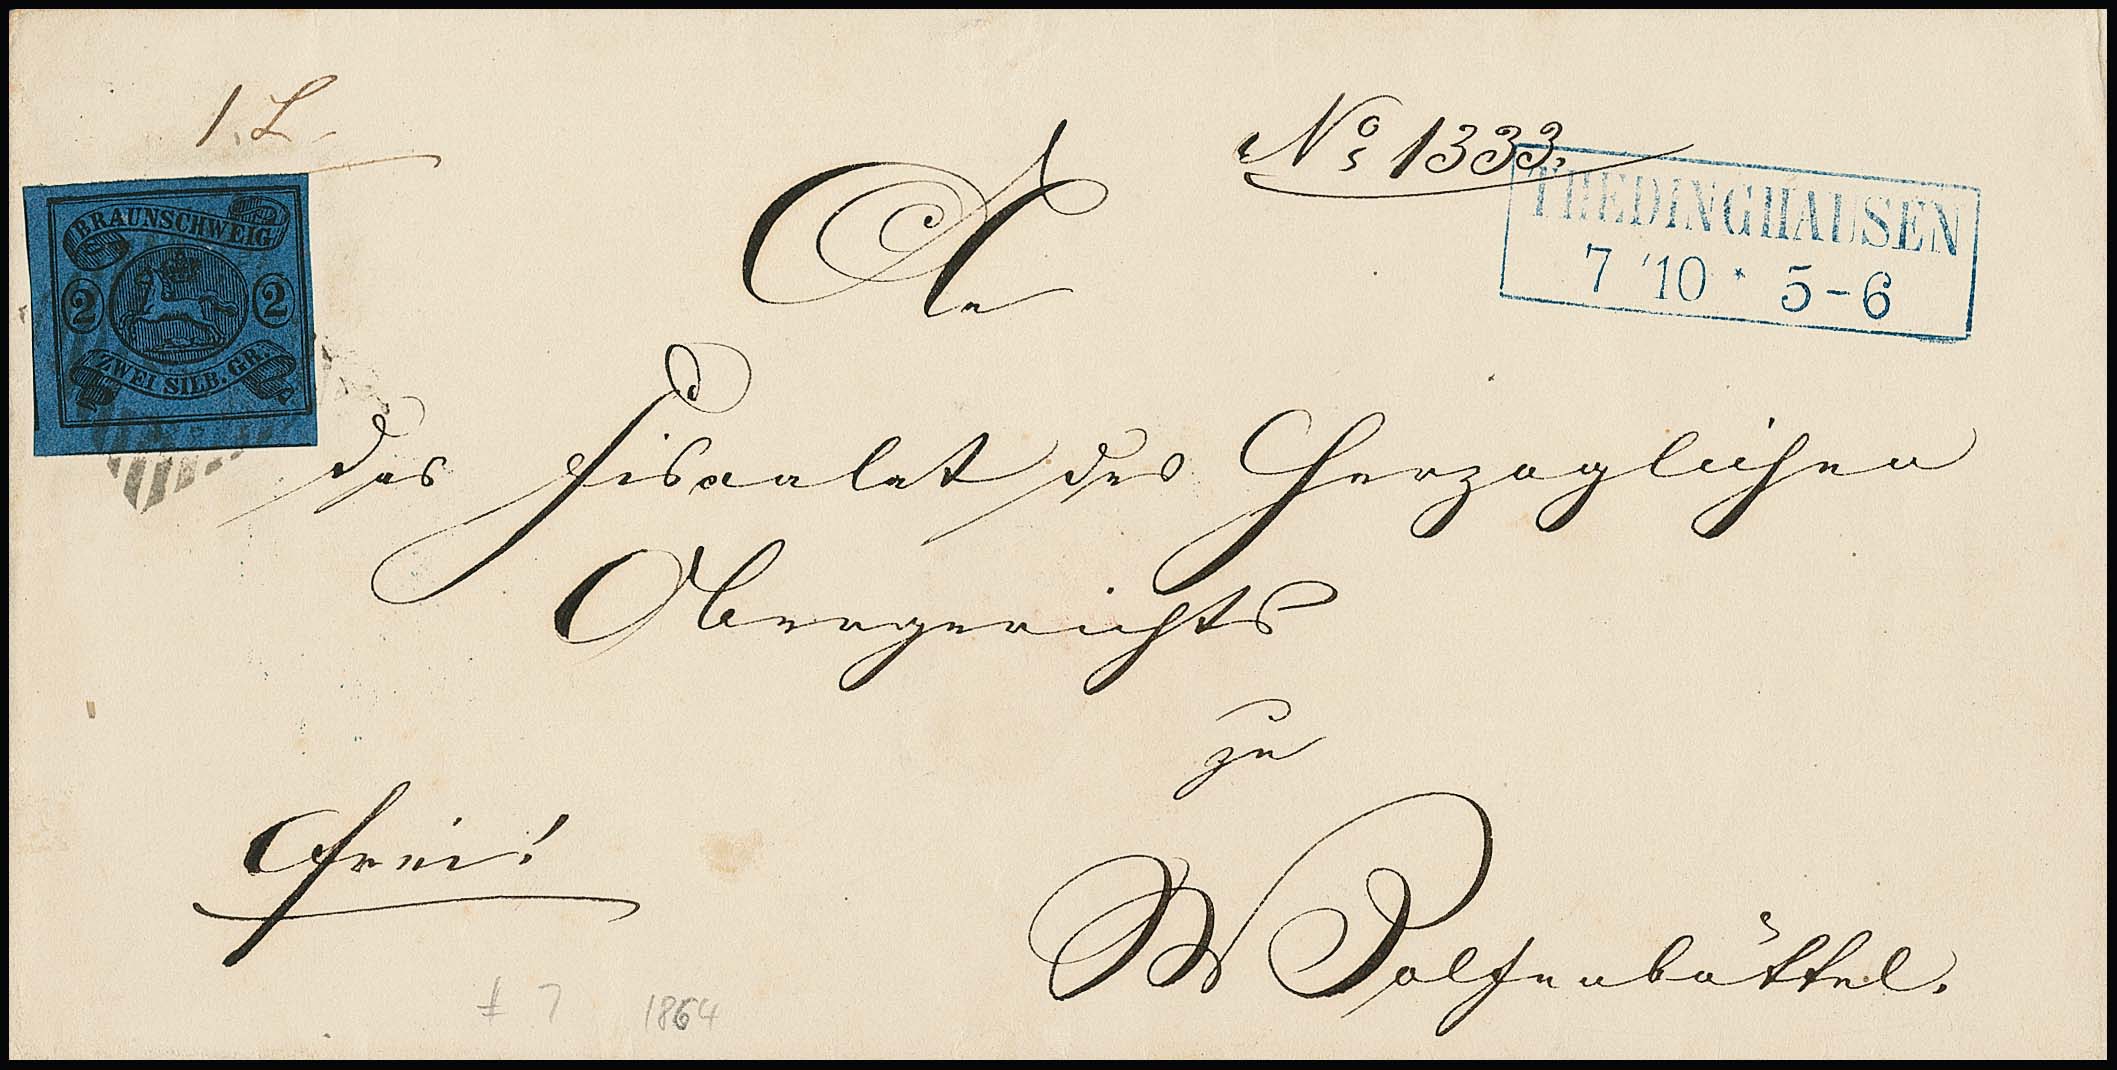 1. L.
No 1333.
BRAUNSCHWEIG
2 2
ZWEI SILB. GR.
THEDINGHAUSEN
7 10 * 5-6
An
das Fiscalat des Herzoglichen
Obergerichts
zu
frei!
Wolfenbüttel.
# 7 1864